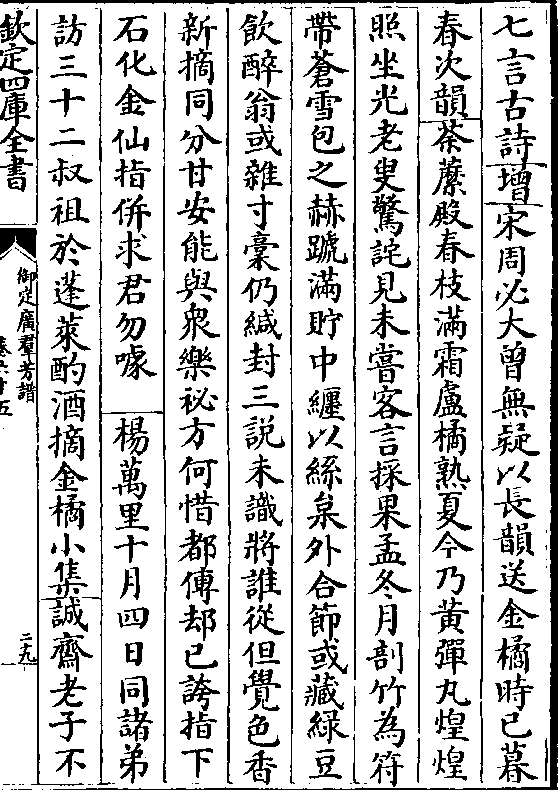 七言古詩增宋周必大曾無疑以長韻送金橘時已暮
春次韻荼蘼殿春枝滿霜盧橘熟夏今乃黄彈丸煌煌
照坐光老叟驚詫見未嘗客言採果孟冬月剖竹為符
帶蒼雪包之赫蹏滿貯中纏以絲枲外合節或藏綠豆
飲醉翁或雜寸藁仍緘封三説未識將誰從但覺色香
新摘同分甘安能與衆樂祕方何惜都傳却已誇指下
石化金仙指併求君勿噱　楊萬里十月四日同諸弟
訪三十二叔祖於蓬萊酌酒摘金橘小集誠齋老子不
欽定四庫全書
御定廣羣芳譜
卷六十五
二九